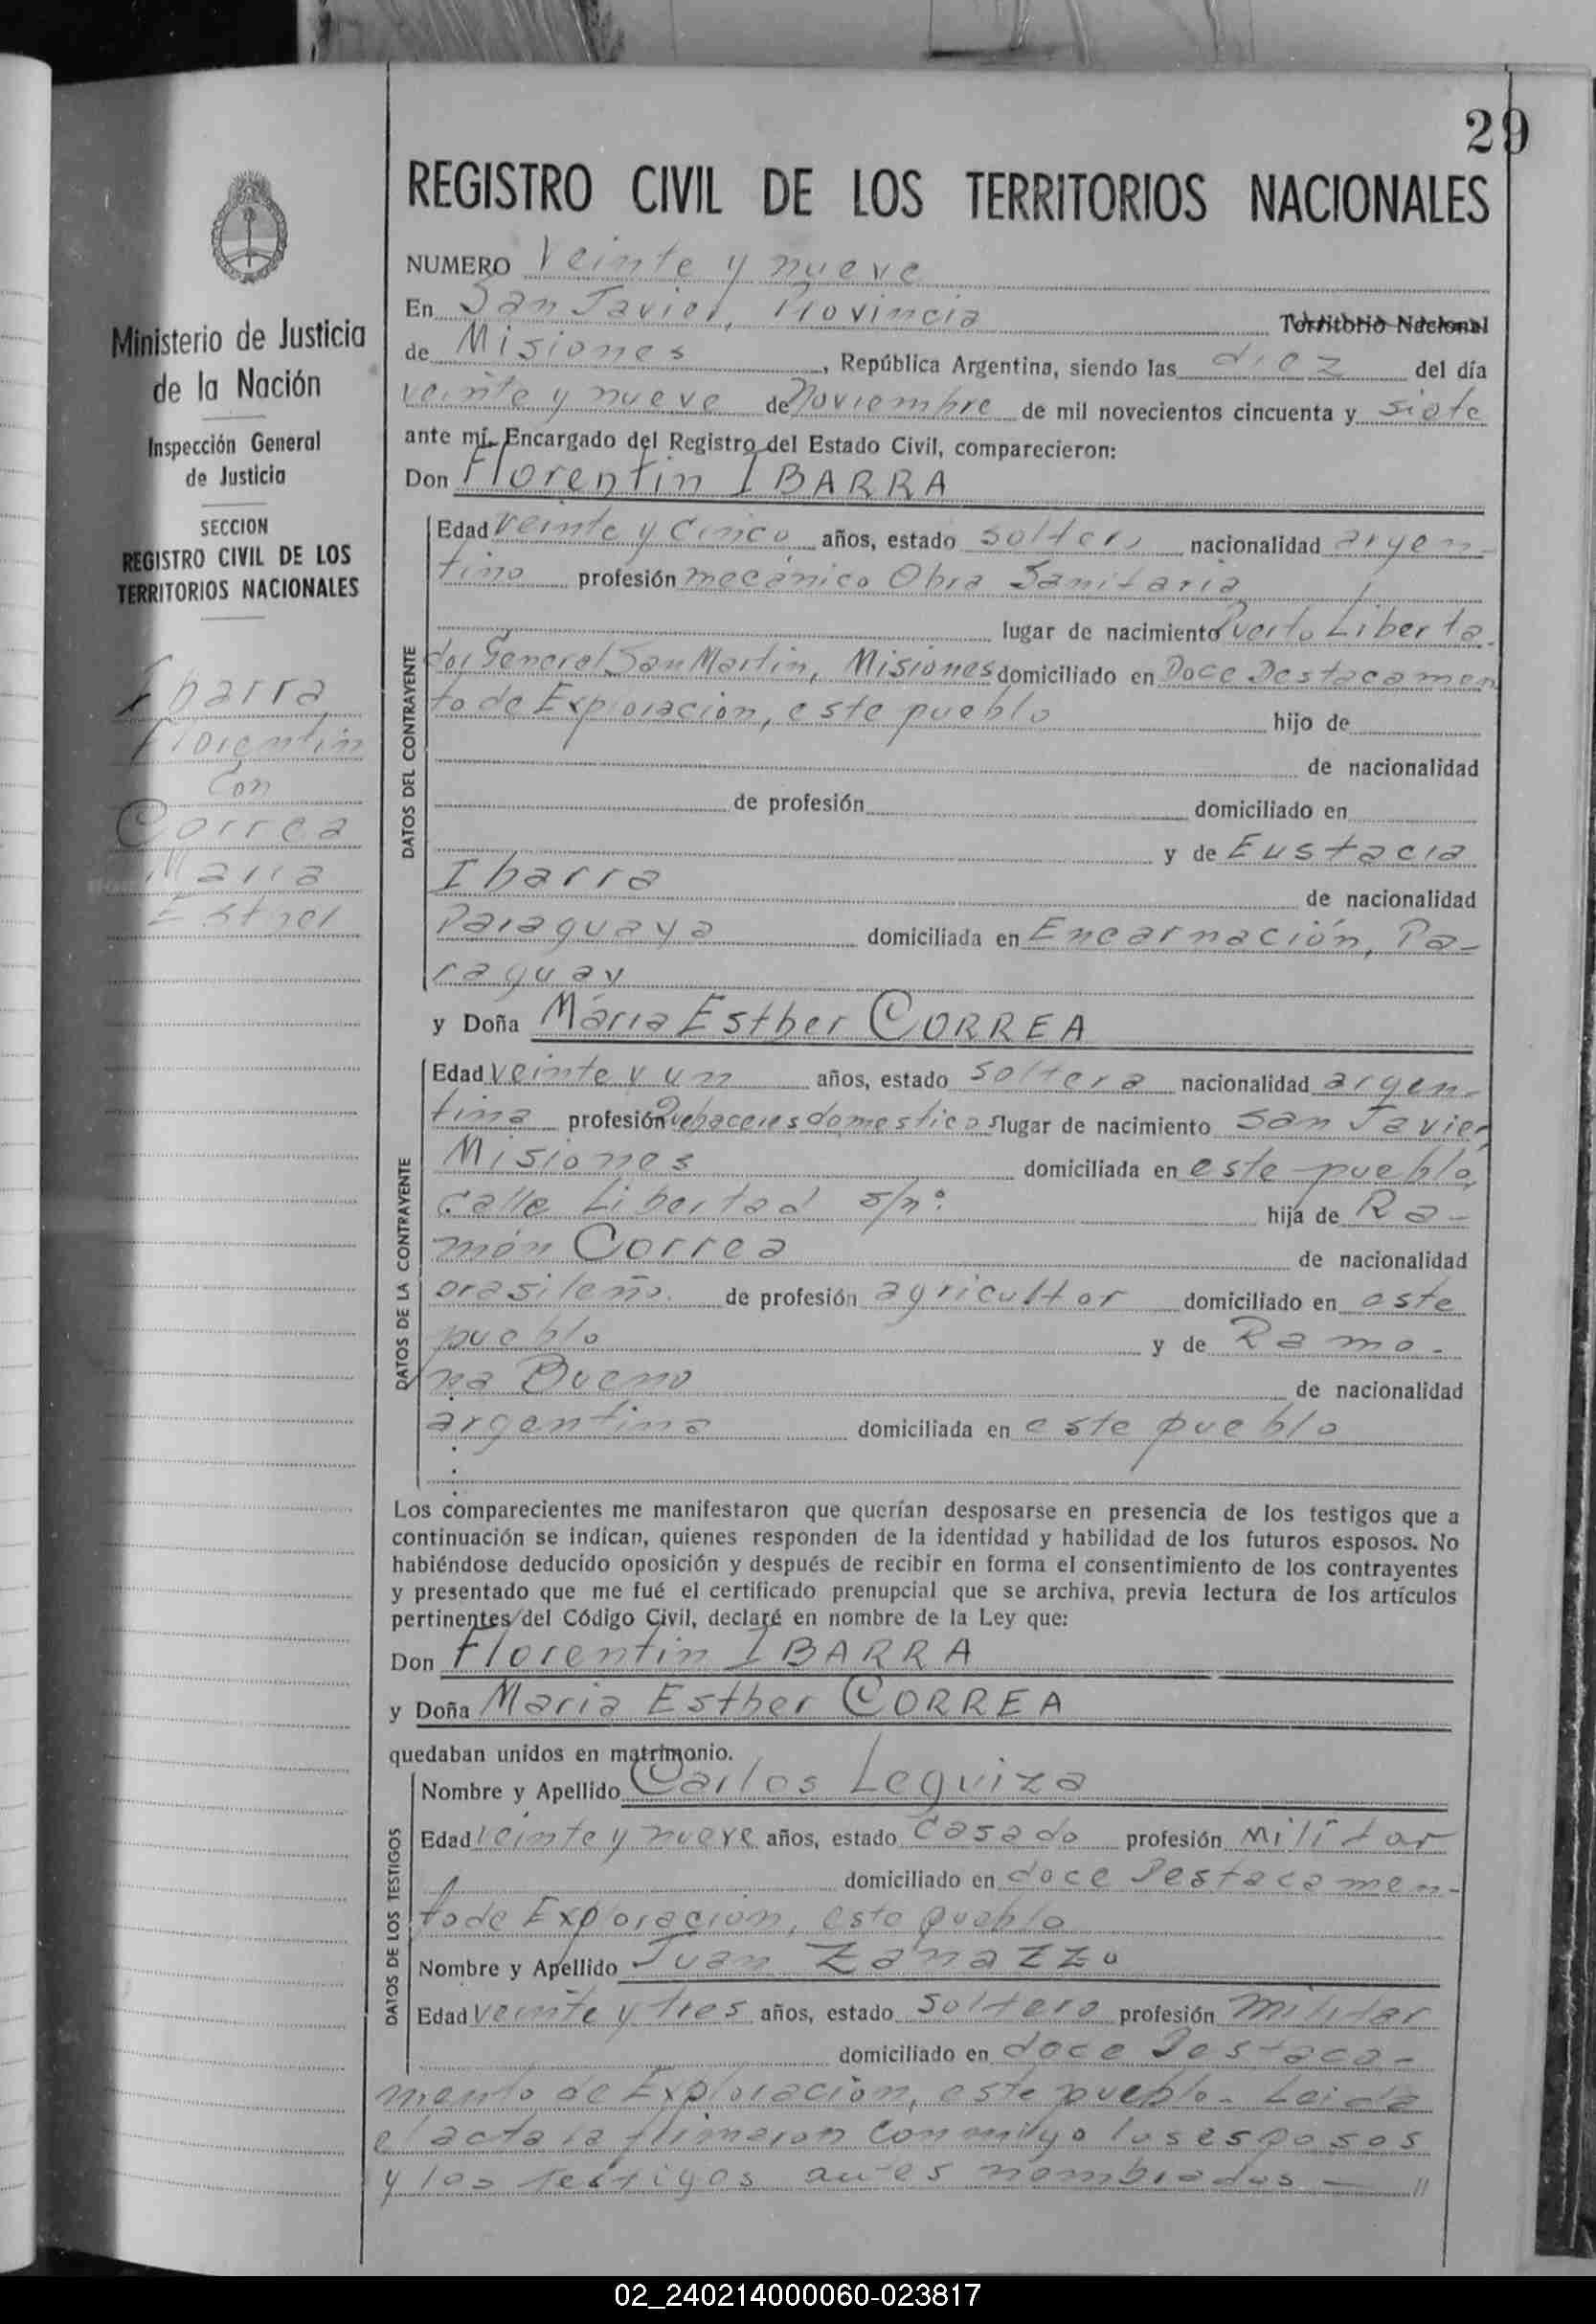 29
REGISTRO CIVIL DE LOS TERRITORIOS NACIONALES
NUMERO Veinte y nueve
En San Javier, Provincia Territorio Nacional
de Misiones, República Argentina, siendo las diez del día
veinte y nueve de Noviembre de mil novecientos cincuenta y siete
ante mí, Encargado del Registro del Estado Civil, comparecieron:
Don Florentin IBARRA
DATOS DEL CONTRAYENTE
Edad veinte y cinco años, estado soltero nacionalidad argen-
tino profesión mecánico Obra Sanitaria
lugar de nacimiento Puerto Liberta-
dor General San Martin, Misiones domiciliado en Doce Destacamen
to de Exploración, este pueblo hijo de
de nacionalidad
de profesión domiciliado en
y de Eustacia
Ibarra de nacionalidad
Paraguaya domiciliada en Encarnación, Pa-
raguay
y Doña Maria Esther CORREA
DATOS DE LA CONTRAYENTE
Edad veinte y un años, estado soltera nacionalidad argen-
tina profesión Quehaceres domesticos lugar de nacimiento San Javier,
Misiones domiciliada en este pueblo,
calle Libertad s/nº: hija de Ra-
món Correa de nacionalidad
brasileño. de profesión agricultor domiciliado en este
pueblo y de Ramo-
na Bueno de nacionalidad
argentina domiciliada en este pueblo
Los comparecientes me manifestaron que querían desposarse en presencia de los testigos que a
continuación se indican, quienes responden de la identidad y habilidad de los futuros esposos. No
habiéndose deducido oposición y después de recibir en forma el consentimiento de los contrayentes
y presentado que me fué el certificado prenupcial que se archiva, previa lectura de los artículos
pertinentes del Código Civil, declaré en nombre de la Ley que:
Don Florentin IBARRA
y Doña Maria Esther CORREA
quedaban unidos en matrimonio.
DATOS DE LOS TESTIGOS
Nombre y Apellido Carlos Leguiza
Edad veinte y nueve años, estado casado profesión militar
domiciliado en doce Destacamen-
to de Exploración, este pueblo
Nombre y Apellido Juan Zanazzo
Edad veinte y tres años, estado soltero profesión militar
domiciliado en doce Destaca-
mento de Exploración, este pueblo- Leida
el acta la firmaron conmigo los esposos
y los testigos antes nombrados — //
Ministerio de Justicia
de la Nación
Inspección General
de Justicia
SECCION
REGISTRO CIVIL DE LOS
TERRITORIOS NACIONALES
Ibarra
Florentin
Con
Correa
Maria
Esther
02_240214000060-023817